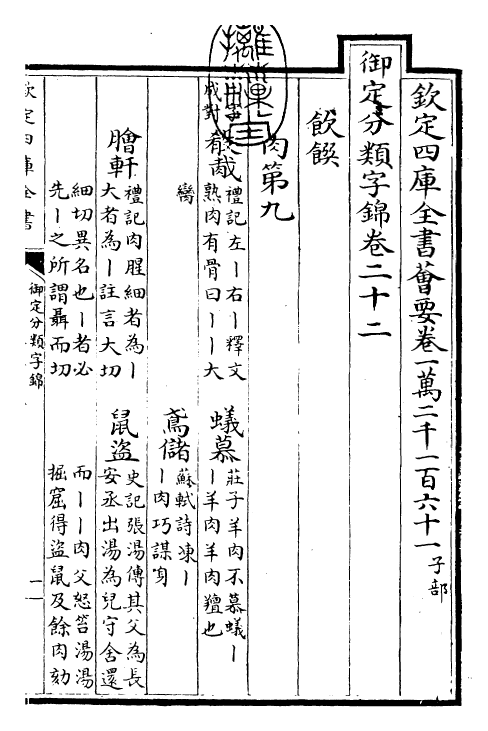 欽定四庫全書薈要卷一萬二千一百六十一子部
御定分類字錦卷二十二
飲饌
肉第九
成對
殽胾禮記左丨右丨釋文
熟肉有骨曰丨丨大
臠
蟻慕莊子羊肉不慕蟻丨
丨羊肉羊肉羶也
鳶儲蘇軾詩凍丨
丨肉巧謀穿
膾軒禮記肉腥細者為丨
大者為丨註言大切
細切異名也丨者必
先丨之所謂聶而切
鼠盜史記張湯傳其父為長
安丞出湯為兒守舍還
而丨丨肉父怒笞湯湯
掘窟得盜鼠及餘肉劾
欽定四庫全書
御定分類字錦
一